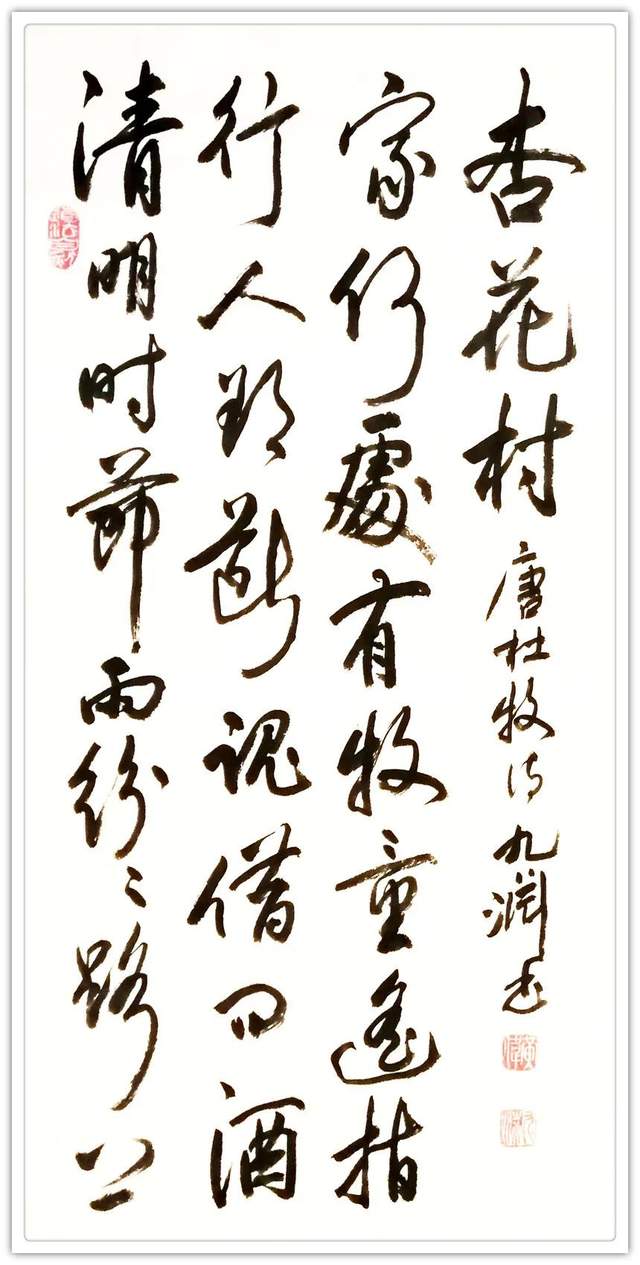 清明时節雨紛々路上
行人欲斷魂借问酒
家何處有牧童遥指
杏花村
唐杜牧诗九渊书